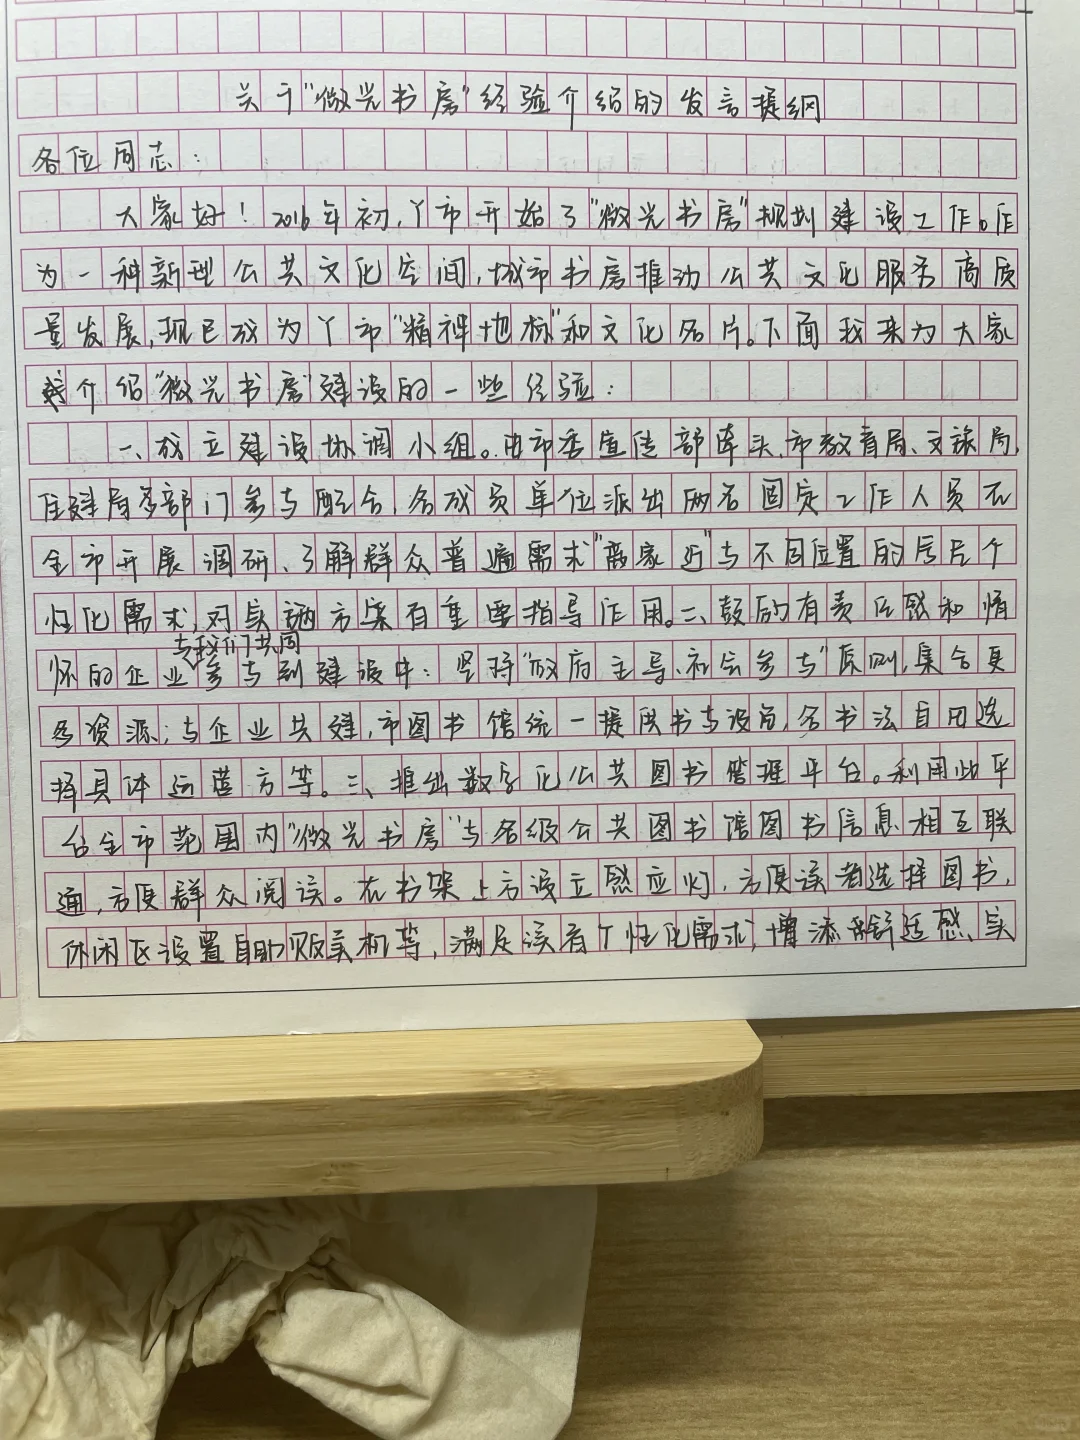 关于"微光书房"经验介绍的发言提纲
各位同志：
大家好！2016年初，丫市开始了"微光书房"规划建设工作。作
为一种新型公共文化空间，城市书房推动公共文化服务高质
量发展，现已成为丫市"精神地标"和文化名片。下面我来为大家
介绍"微光书房"建设的一些经验：
一、成立建设协调小组。由市委宣传部牵头，市教育局、文旅局、
住建局多部门参与配合，各成员单位派出两名固定工作人员在
全市开展调研、了解群众普遍需求"离家近"与不同位置的居民个
性化需求，对实施方案有重要指导作用。二、鼓励有责任感和情
与我们共同
怀的企业参与到建设中：坚持"政府主导、社会参与"原则，集合更
多资源；与企业共建，市图书馆统一提供书与设备，各书法自由选
择具体运营方等。三、推出数字化公共图书管理平台。利用此平
台全市范围内"微光书房"与各级公共图书馆图书信息相互联
通，方便群众阅读。在书架上方设立感应灯，方便读者选择图书，
休闲区设置自助贩卖机等，满足读者个性化需求，增添舒适感、实